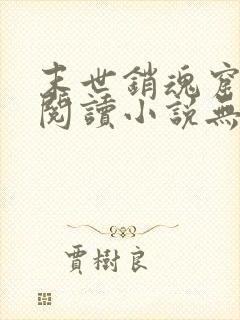 末世銷魂窟
閱讀小說無
賈樹良